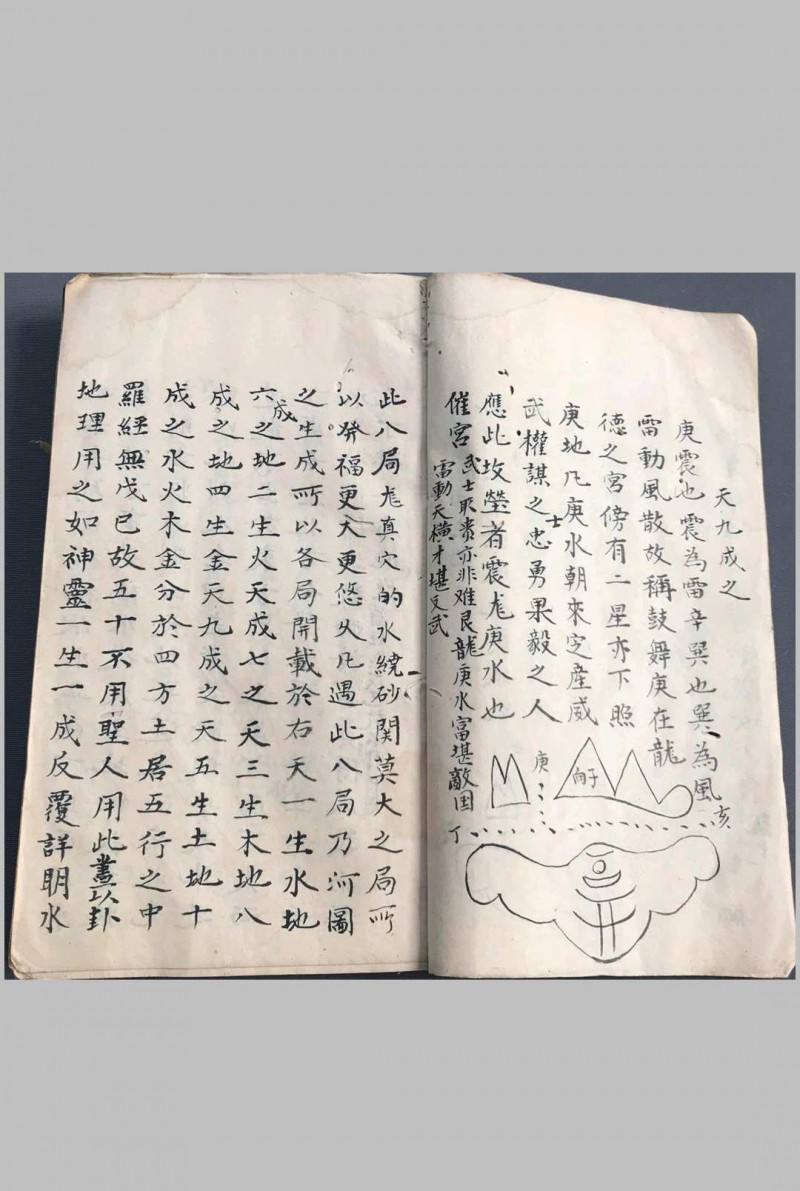 天九成之
庚震也震為雷辛巽也巽為風
雷動風散故稱鼓舞庚在龍
德之宮傍有二星亦下照
庚地凡庚水朝來定産威
武權謀之士忠勇果毅之人
應此坟塋者震龙庚水也
催宮武士取贵亦非难艮龍庚水富堪敵囯
雷動天横才堪反武
庚
向子
亥
丁
此八局龙真穴的水繞砂関莫大之局所
以發福更大更悠久凡遇此八局乃河圖
之生成所以各局開載於右天一生水地
六成之地二生火天成七之天三生木地八
成之地四生金天九成之天五生土地十
成之水火木金分於四方土居五行之中
羅經無戊已故五十不用聖人用此畫以卦
地理用之如神靈一生一成反覆詳明水